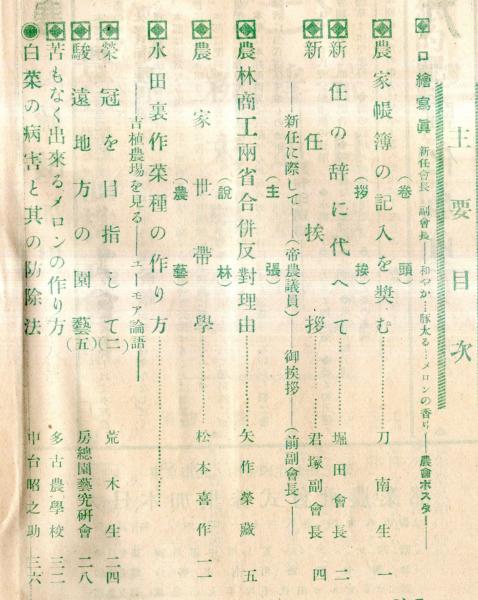 主要目次
口繪寫眞 新任會長 副會長――和やか…豚太る…メロンの香り――農會ポスター――
(卷頭)
農家帳簿の記入を奬む………刀南生 一
(挨拶)
新任の辞に代へて………堀田會長 二
新任挨拶………君塚副會長 四
――新任に際して――(帝農議員) 御挨拶――(前副會長)――
(主張)
農林商工兩省合併反對理由………矢作榮藏 五
(說林)
農家世帶學………松本喜作 一一
(農藝)
水田裏作菜種の作り方………
――吉植農場を見る―― ユーモア論語――
榮冠を目指して(二) 荒木生 二四
駿遠地方の園藝(五) 房總園藝究硏會 二八
苦もなく出來るメロンの作り方 多古農學校 三二
白菜の病害と其の防除法 中台昭之助 三六